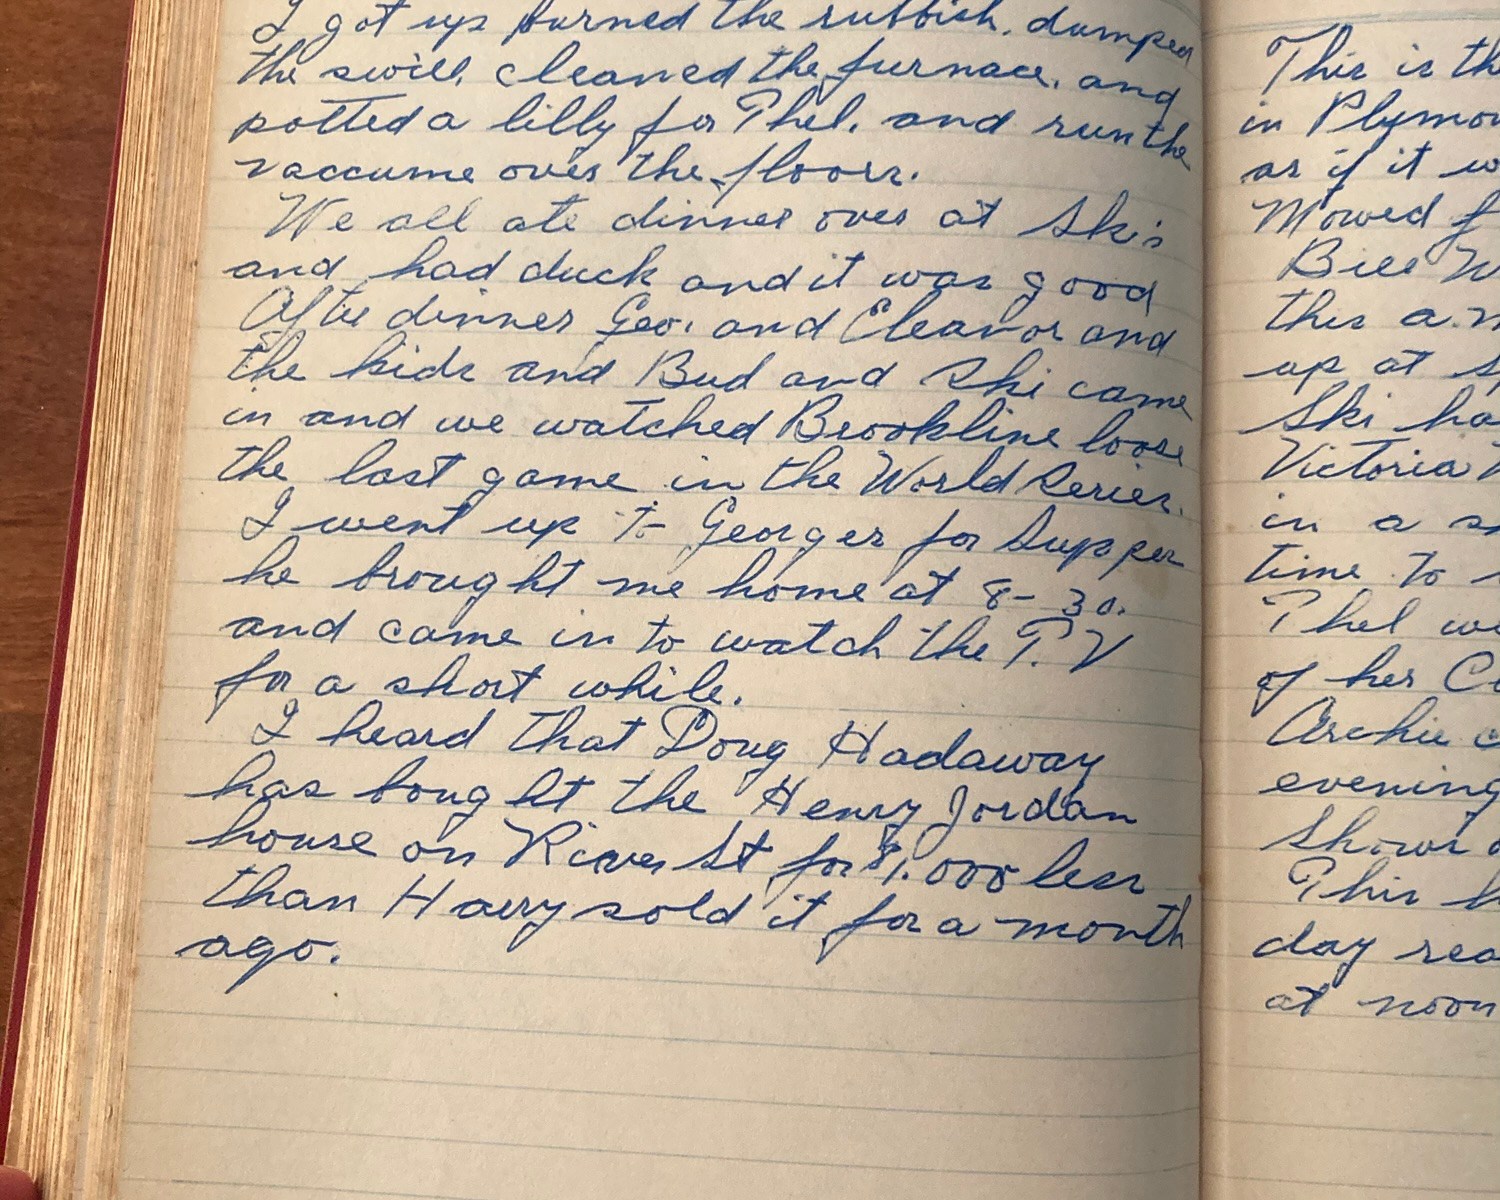 I got up burned the rubbish, dumped
the swill, cleaned the furnace, and
potted a lilly for Thel, and run the
vaccume over the floors.
We all ate dinner over at Ski's
and had duck and it was good
After dinner Geo. and Eleanor and
the kids and Bud and Ski came
in and we watched Brookline loose
the last game in the World Series.
I went up to Georges for Supper
he brought me home at 8-30.
and came in to watch the T.V
for a short while.
I heard that Doug Hadaway
has bought the Henry Jordan
house on River St for $1,000 less
than Harry sold it for a month
ago.
This is th
in Plymou
as if it w
Mowed f
Bill W
this a.m
up at S
Ski ha
Victoria
in a s
time to
Thel we
of her Co
Archie c
evening
Shows a
This h
day rea
at noon